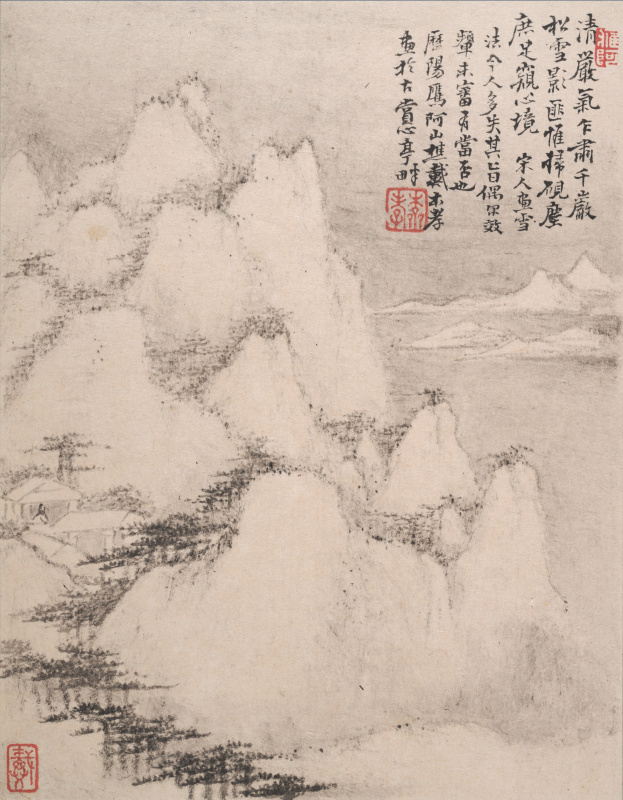 清嚴氣乍肅千巖
松雪影匪惟掃硯塵
庶足窺心境 宋人画雪
法今人多失其旨偶尔效
顰未審有當否也
歷陽鷹阿山樵戴本孝
画於古賞心亭畔